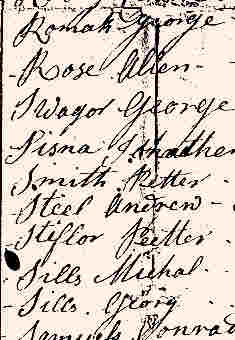 Romah George
Rose Allen
Swagor George
Sisna Jonathen
Smith Petter
Steel Andrew
Stiflor Peetter
Sills Michal
Sills Georg
Samuels Conrad